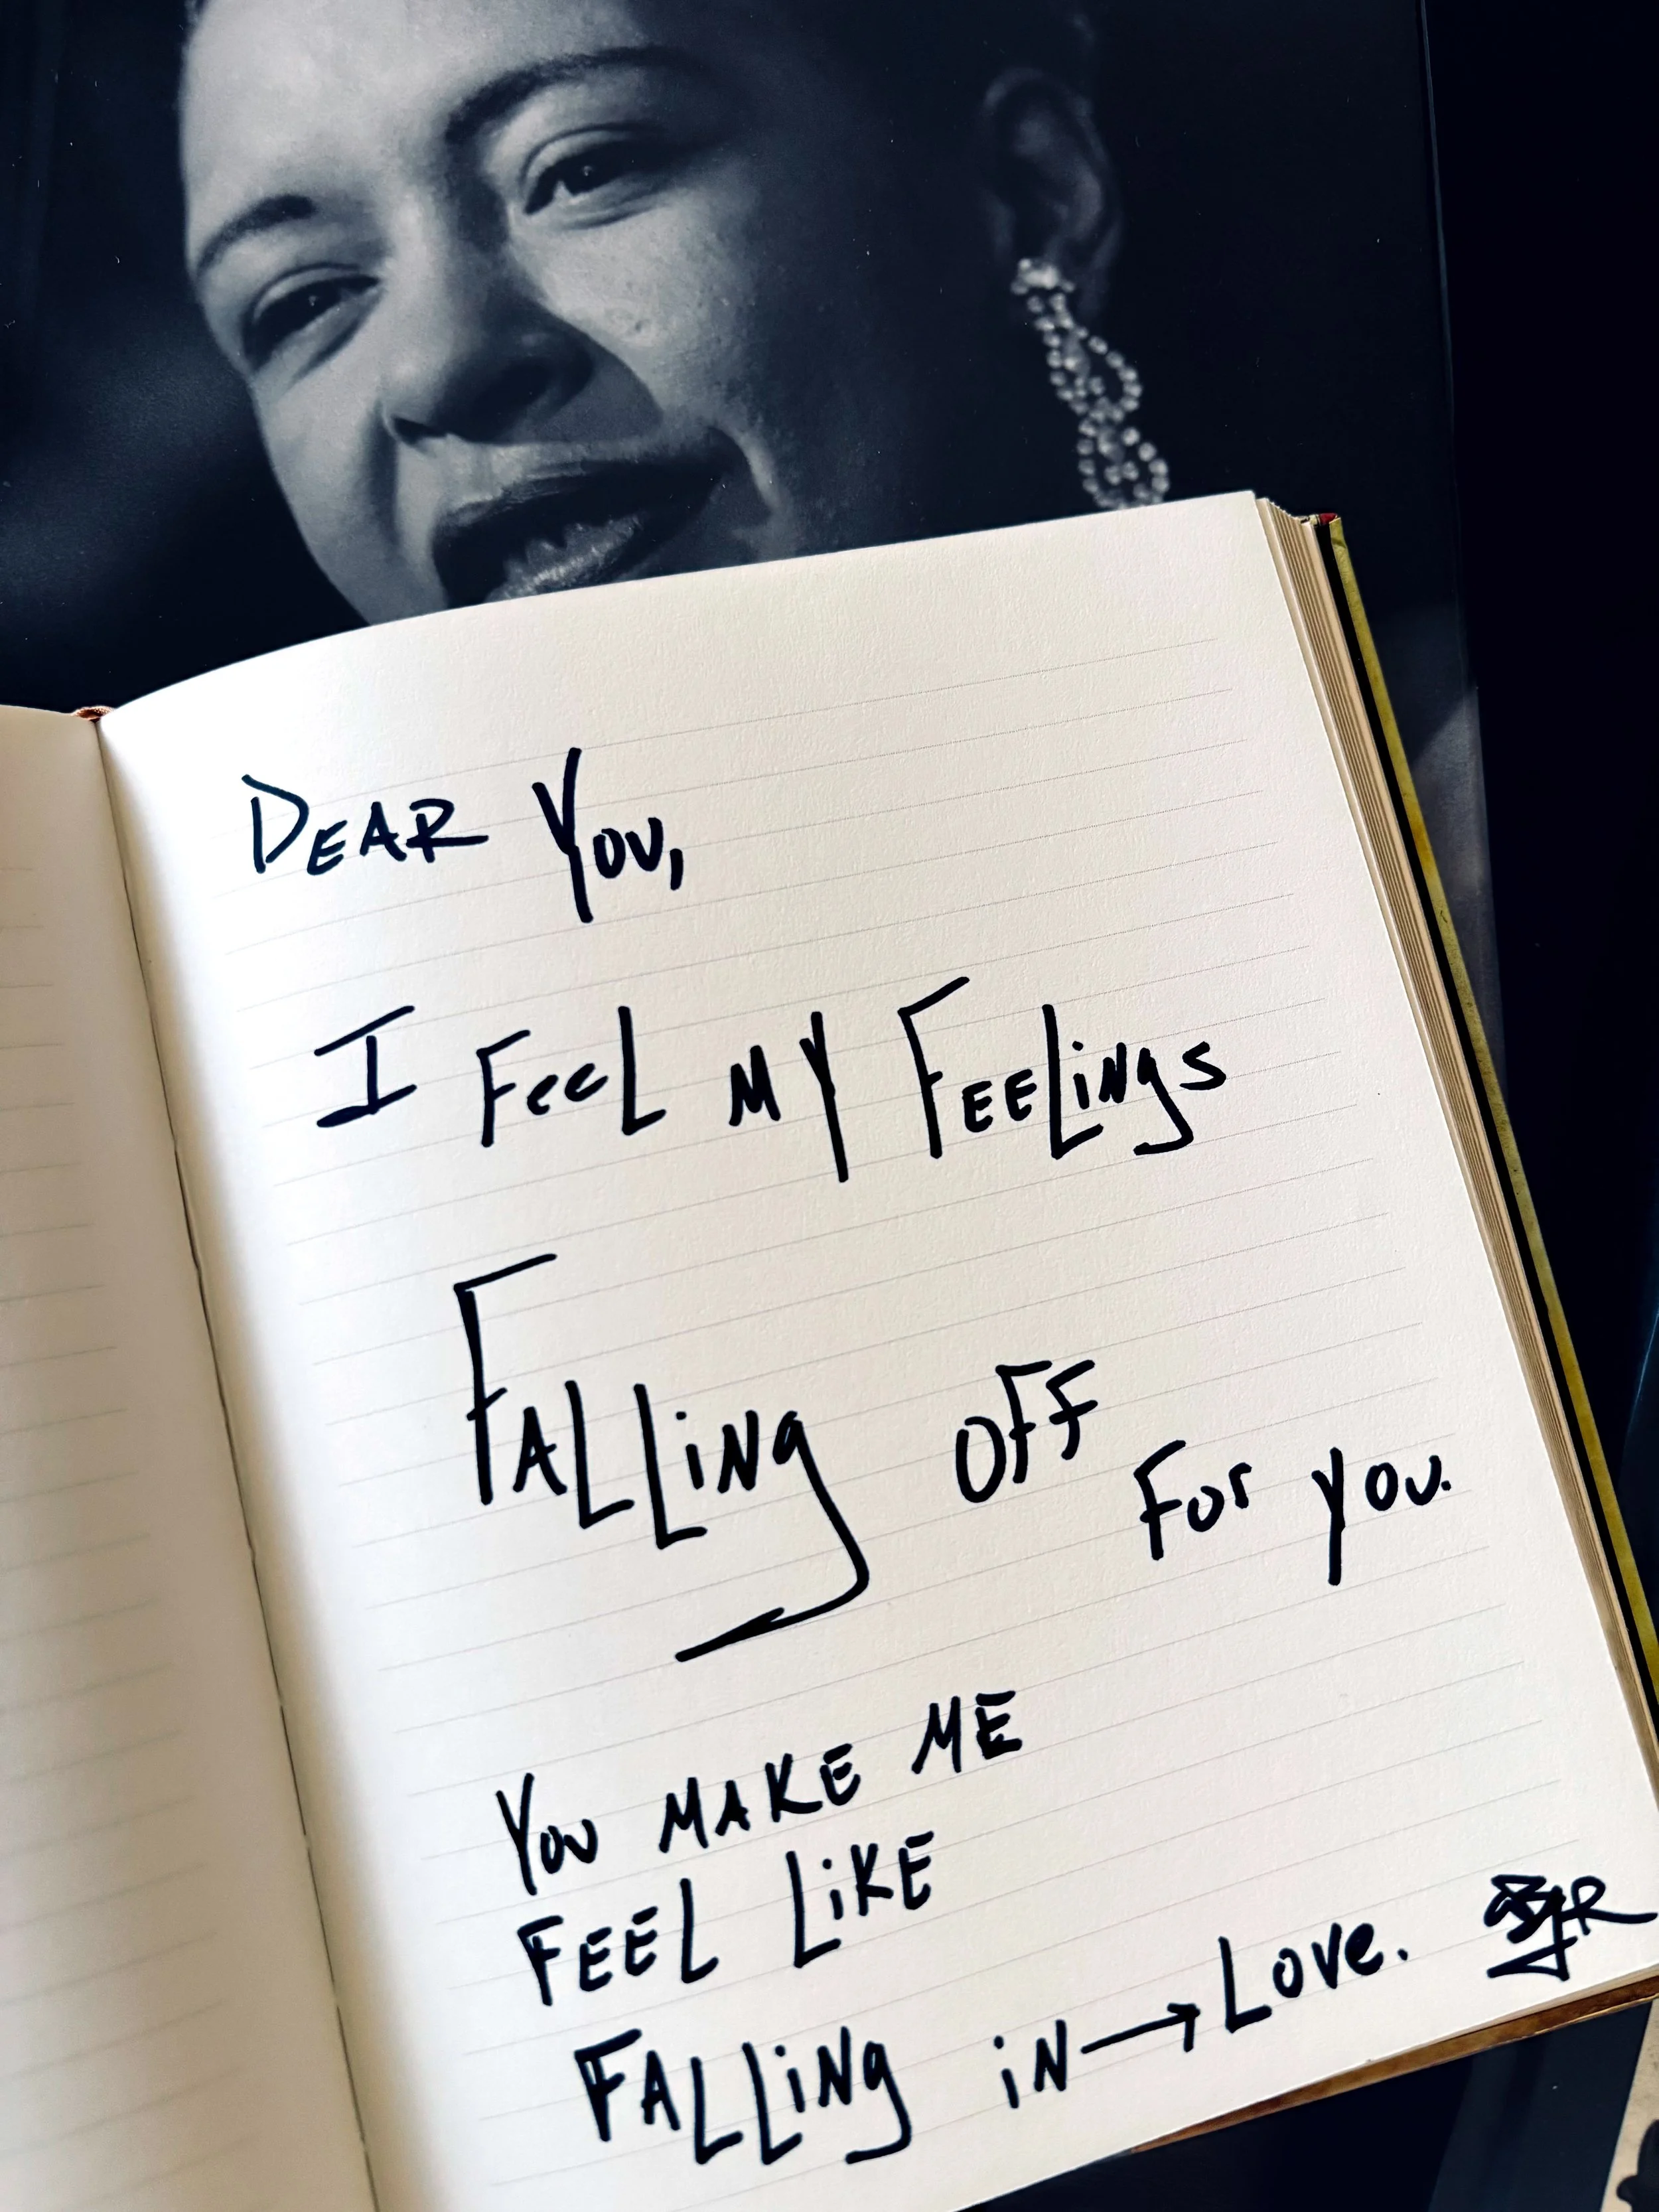 DEAR YOU,
I FeeL MY FEELiNgS
FALLiNg OFF
For you.
YOU MAKE ME
FEEL LiKE
FALLiNg iN→LOVe.